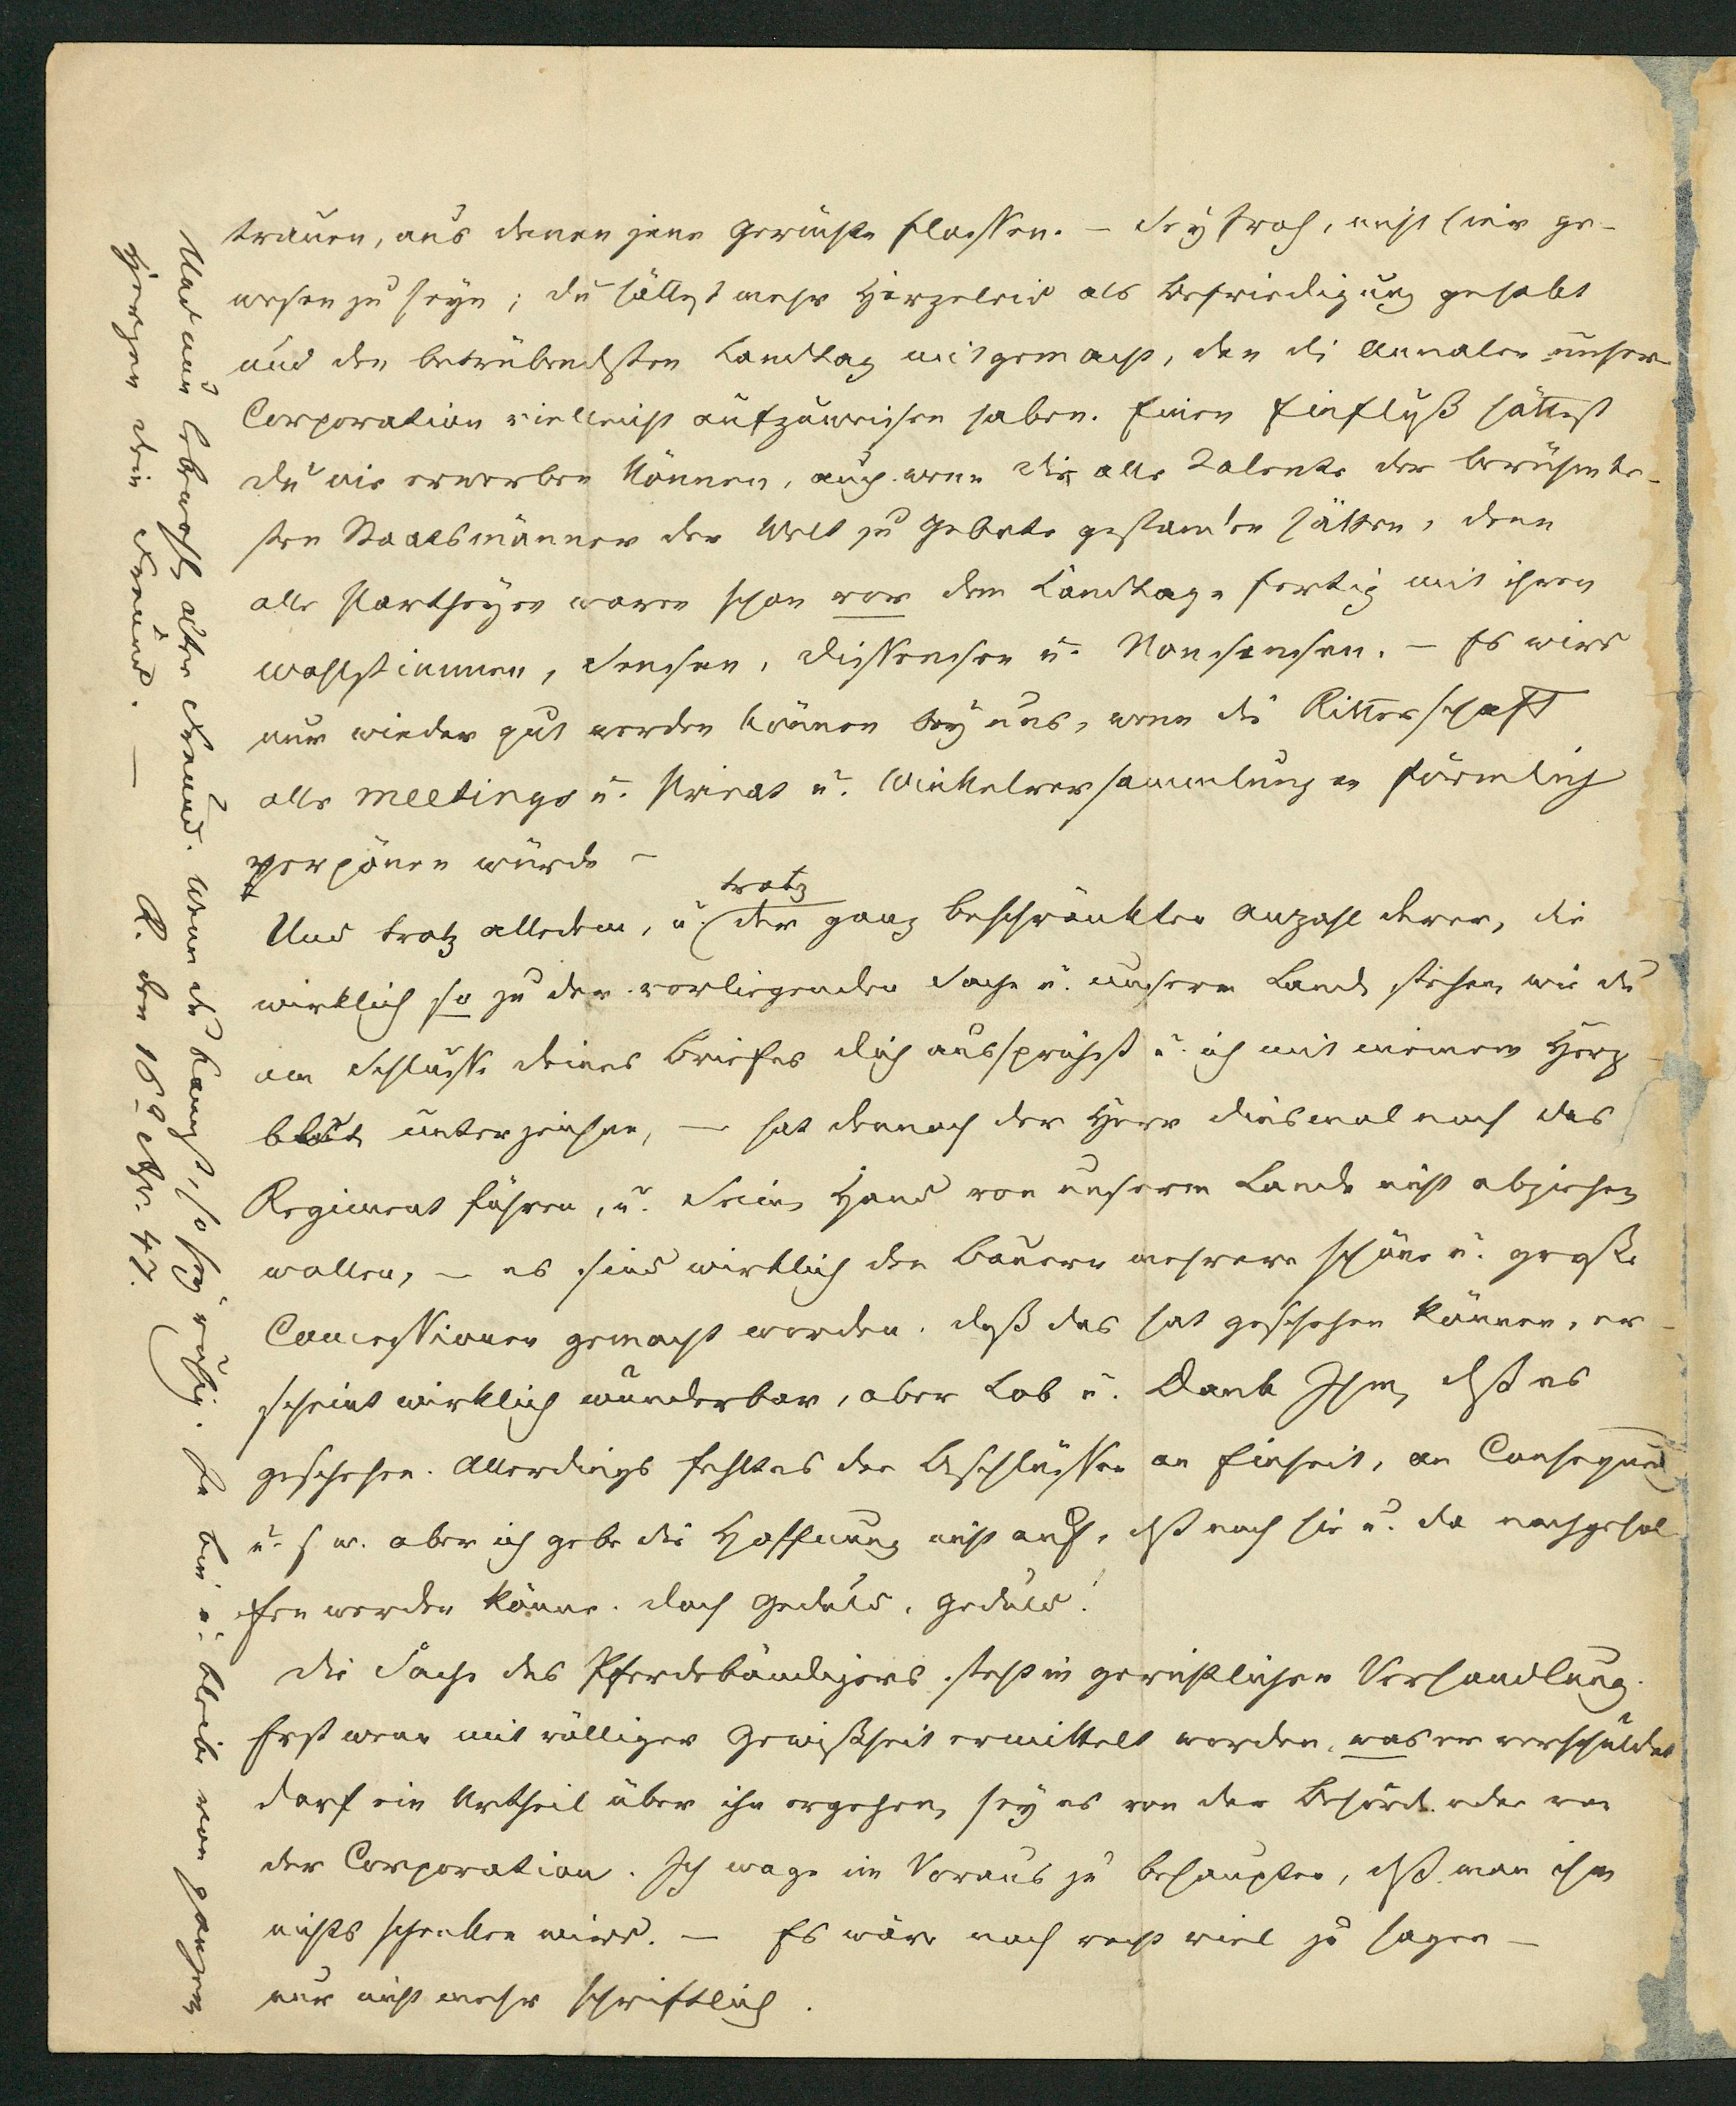 trauen, aus denen jene Gerüchte flossen. – Sey froh, nicht hier ge-
wesen zu seyn; du hättest mehr Herzeleid als Befriedigung gehabt
und den betrübendsten Landtag mitgemacht, den die Annalen unser
Corporation vielleicht aufzuweisen haben. Einen Einfluß hättest
du nie erwerben können, auch wenn dir alle Talente der berühmte-
sten Staatsmänner der Welt zu Gebote gestanden hätten, denn
alle Partheyen waren schon vor dem Landtage fertig mit ihren
Wahlstimmen, Sensen, Dissensen u. Nonsensen. – Es wird
nur wieder gut werden können bey uns, wenn die Ritterschaft
alle meetings u. Privat u. Winkelversammlungen förmlich
verpönen würde –
trotz
Und trotz alledem, u. der ganz beschränkten Anzahl derer, die
wirklich so zu der vorliegenden Sache u. unserem Lande stehen, wie du
am Schlusse deines Briefes dich aussprichst u. ich mit meinem Herz
blut unterzeichne, – hat dennoch der Herr diesmal noch das
Regiment führen, u. Seine Hand von unserem Lande nicht abziehen
wollen, – es sind wirklich den Bauern mehrere schöne u. große
Concessionen gemacht worden. Daß das hat geschehen können, er-
scheint wirklich wunderbar, aber Lob u. Dank Ihm, dß es
geschehen. Allerdings fehlt es den Beschlüssen an Einheit, an Consequenz
u. s. w. aber ich gebe die Hoffnung nicht auf, dß noch hie u. da nachgehol
fen werden könne. Doch Geduld, Geduld!
Die Sache des Pferdebändigers steht in gerichtlicher Verhandlung.
Erst wenn mit völliger Gewißheit ermittelt worden, was er verschuldet
darf ein Urtheil über ihn ergehen, sey es von der Behörde oder von
der Corporation. Ich wage im Voraus zu behaupten, dß man ihm
nichts schenken wird. – Es wäre noch recht viel zu sagen –
nur nicht mehr schriftlich.
Und nun lebewohl alter Freund. Wenn du kannst, so sey ruhig. Er bin u. bleibe von ganzem
Herzen dein Freund. – R. den 16. 47.